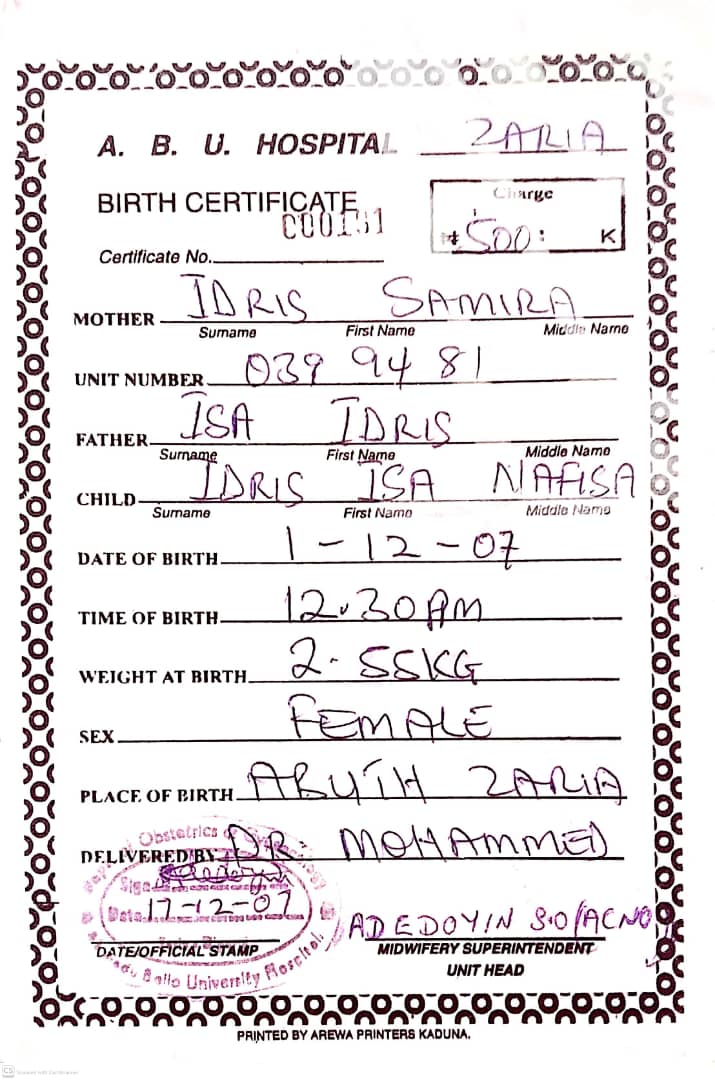 A. B. U. HOSPITAL ZARIA
BIRTH CERTIFICATE
Charge
₦ 500: K
000131
Certificate No.
MOTHER IDRIS SAMIRA
Surname First Name Middle Name
UNIT NUMBER 039 94 81
FATHER ISA IDRIS
Surname First Name Middle Name
CHILD IDRIS ISA NAFISA
Surname First Name Middle Name
DATE OF BIRTH 1-12-07
TIME OF BIRTH 12.30AM
WEIGHT AT BIRTH 2.55KG
SEX FEMALE
PLACE OF BIRTH ABUTH ZARIA
DELIVERED BY DR. MOHAMMED
Obstetrics
Sign
Date 17-12-07
Bello University Hospital
ADEDOYIN S.O/ACNO
DATE/OFFICIAL STAMP
MIDWIFERY SUPERINTENDENT
UNIT HEAD
PRINTED BY AREWA PRINTERS KADUNA.
CS Scanned with CamScanner